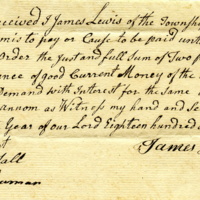 eceived I James Lewis of the Townsh
mis to pay or Cause to be paid unto
Order the Just and full Sum of Two
ance of good Current Money of the
Demand with Interest for the same
Annum as Witness my hand and se
Year of our Lord Eighteen hundred
James